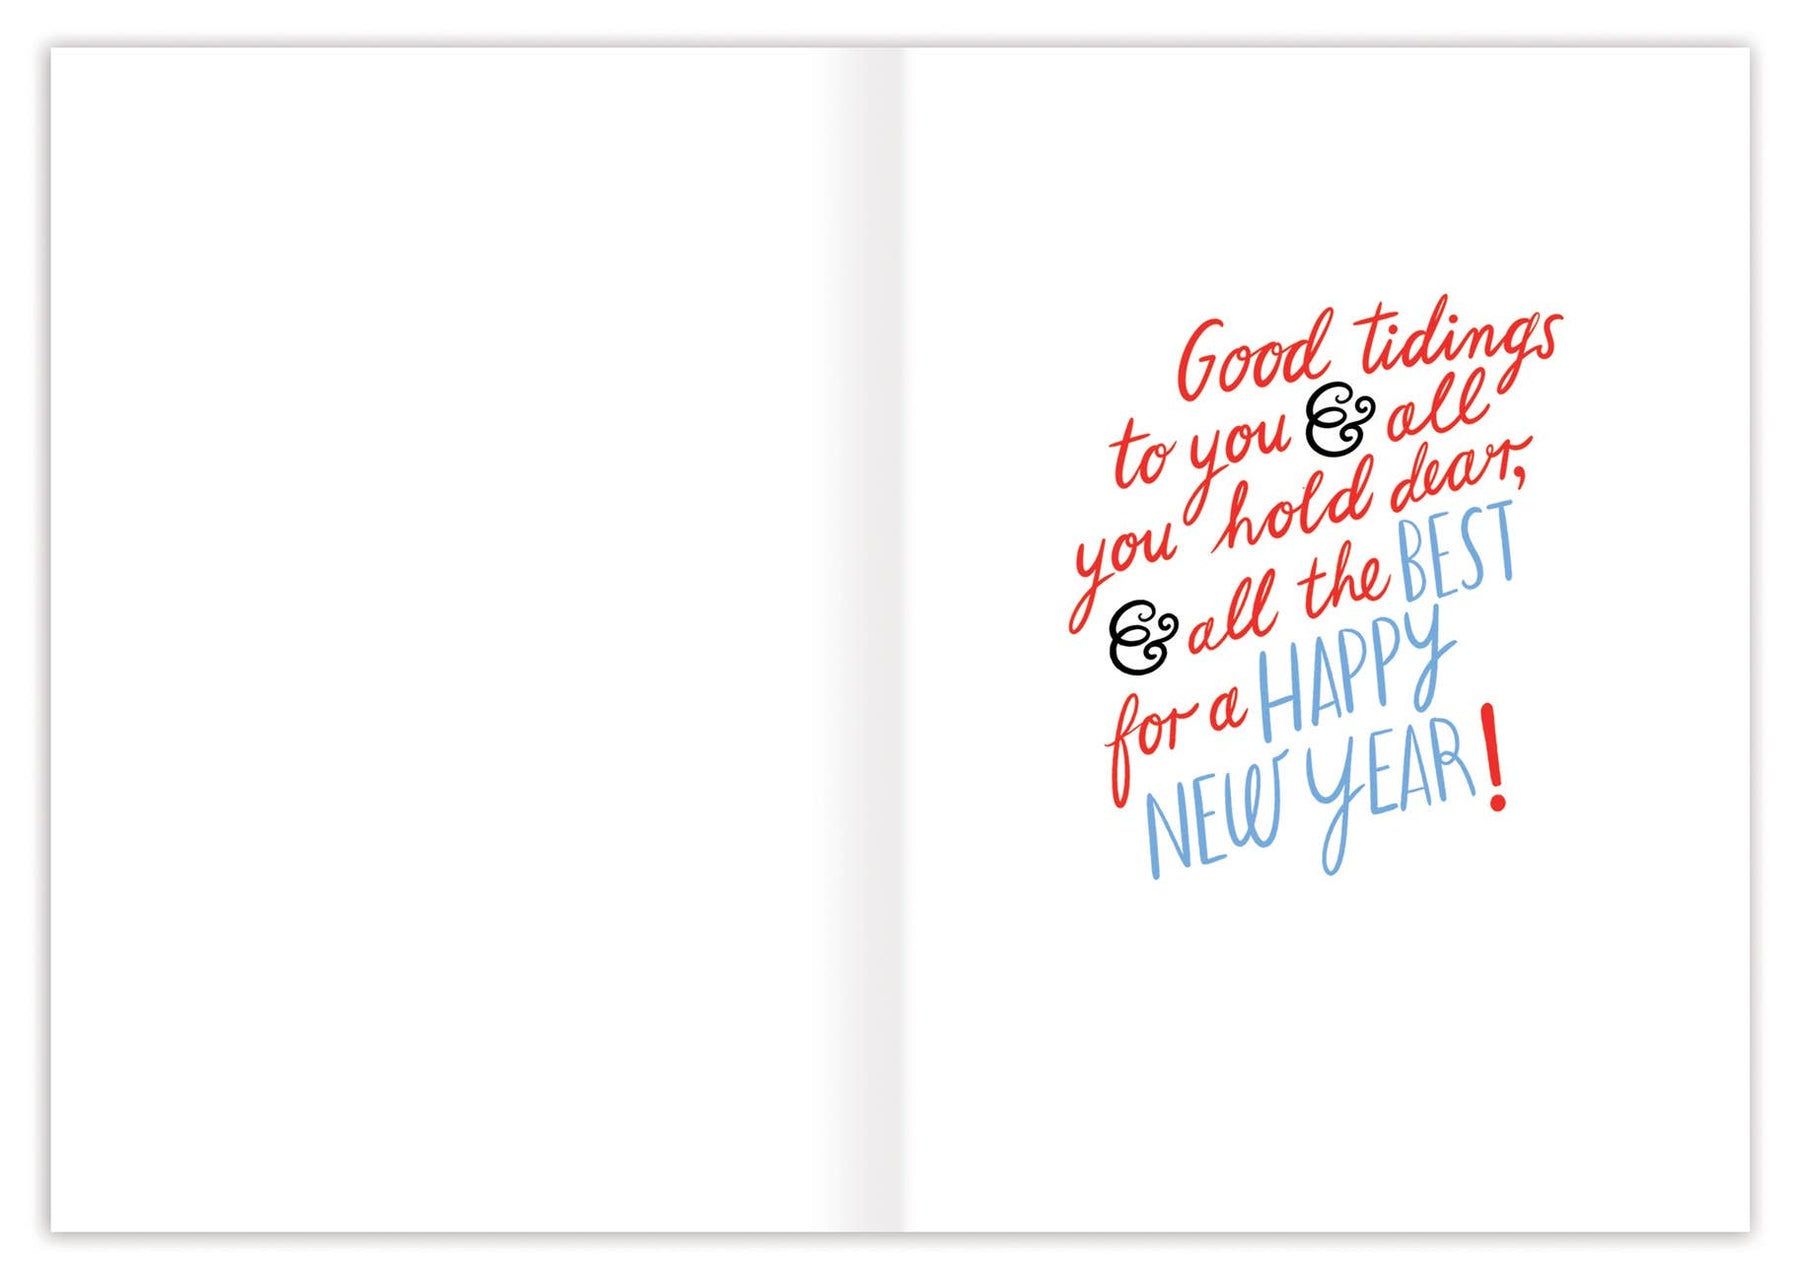 Good tidings
to you & all
you hold dear,
& all the BEST
for a HAPPY
NEW YEAR!